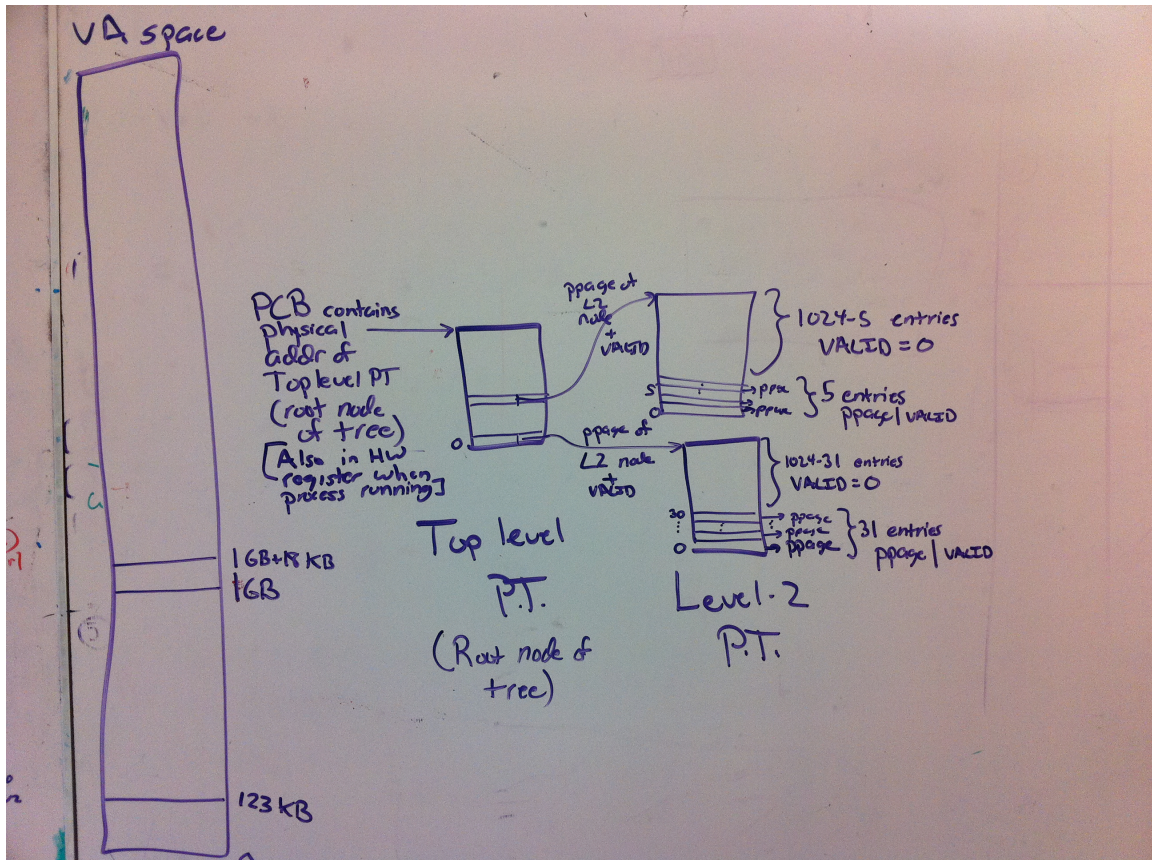 VA space
1GB+18 KB
1GB
123 KB
PCB contains
physical
addr of
Top level PT
(root node
of tree)
[Also in HW
register when
process running]
0
Top level
P.T.
(Root node of
tree)
ppage of
L2
node
+
VALID
5
0
1024-5 entries
VALID = 0
5 entries
ppage | VALID
ppage of
L2 node
+
VALID
30
0
1024-31 entries
VALID = 0
ppage
ppage
ppage
31 entries
ppage | VALID
Level-2
P.T.